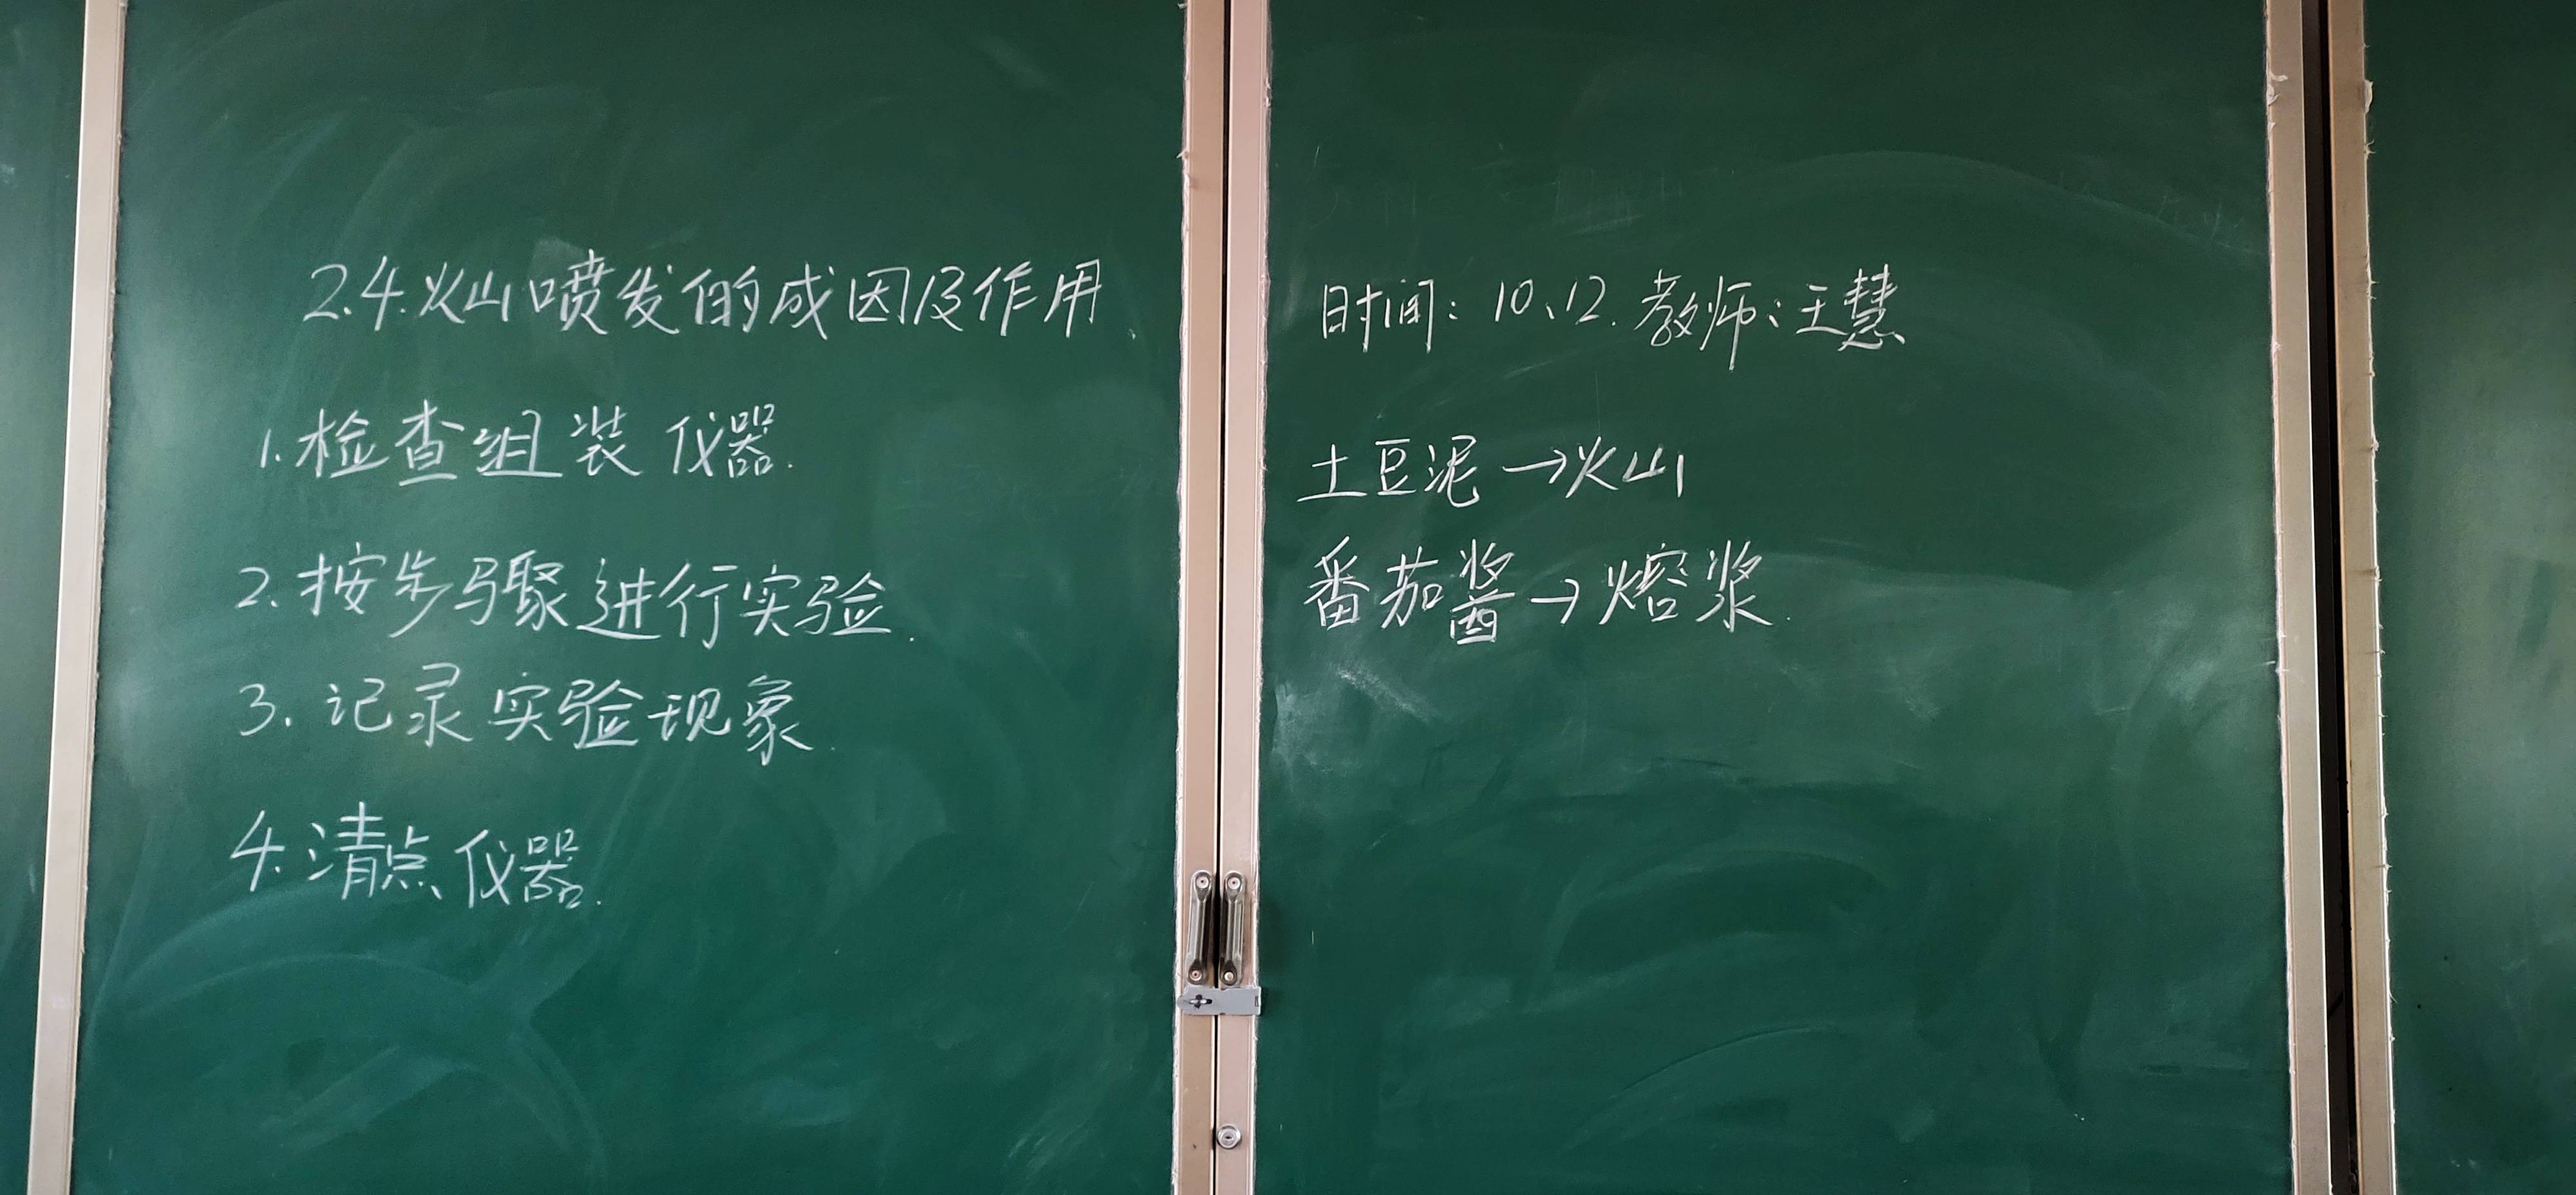 2.4.火山喷发的成因及作用.
1.检查组装仪器.
2.按步骤进行实验.
3.记录实验现象.
4.清点仪器.
时间:10、12.教师:王慧
土豆泥→火山
番茄酱→熔浆.